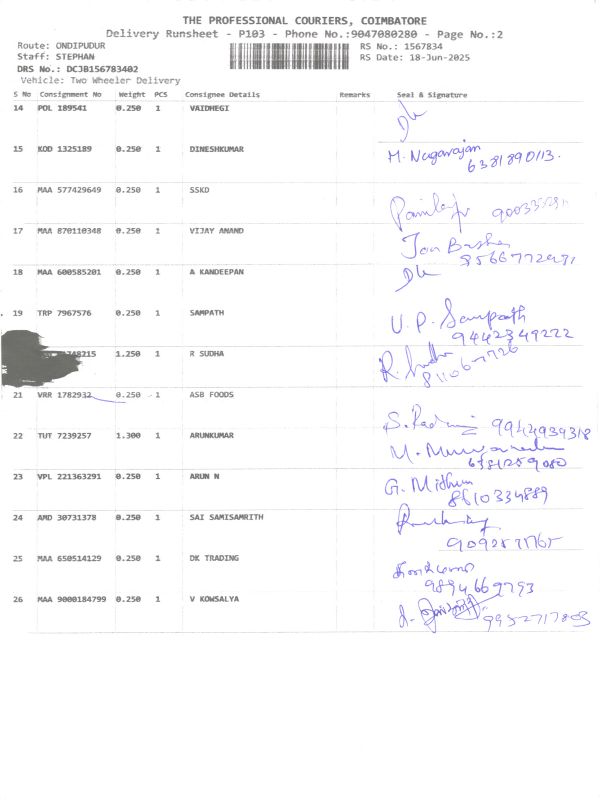 THE PROFESSIONAL COURIERS, COIMBATORE
Delivery Runsheet - P103 - Phone No.:9047080280 - Page No.:2
Route: ONDIPUDUR RS No.: 1567834
Staff: STEPHAN RS Date: 18-Jun-2025
DRS No.: DCJB156783402
Vehicle: Two Wheeler Delivery
S No Consignment No Weight PCS Consignee Details Remarks Seal & Signature
14 POL 189541 0.250 1 VAIDHEGI
15 KOD 1325189 0.250 1 DINESHKUMAR M. Nagarajan
6381890113.
16 MAA 577429649 0.250 1 SSKD
17 MAA 870110348 0.250 1 VIJAY ANAND
18 MAA 600585201 0.250 1 A KANDEEPAN
19 TRP 7967576 0.250 1 SAMPATH U.P. Sampath
9442349222
48215 1.250 1 R SUDHA R. Sudha
21 VRR 1782932 0.250 1 ASB FOODS
9944939318
22 TUT 7239257 1.300 1 ARUNKUMAR
6381259080
23 VPL 221363291 0.250 1 ARUN N G. Midhun
8610334889
24 AMD 30731378 0.250 1 SAI SAMISAMRITH
25 MAA 650514129 0.250 1 DK TRADING
9894669793
26 MAA 9000184799 0.250 1 V KOWSALYA
9952717803